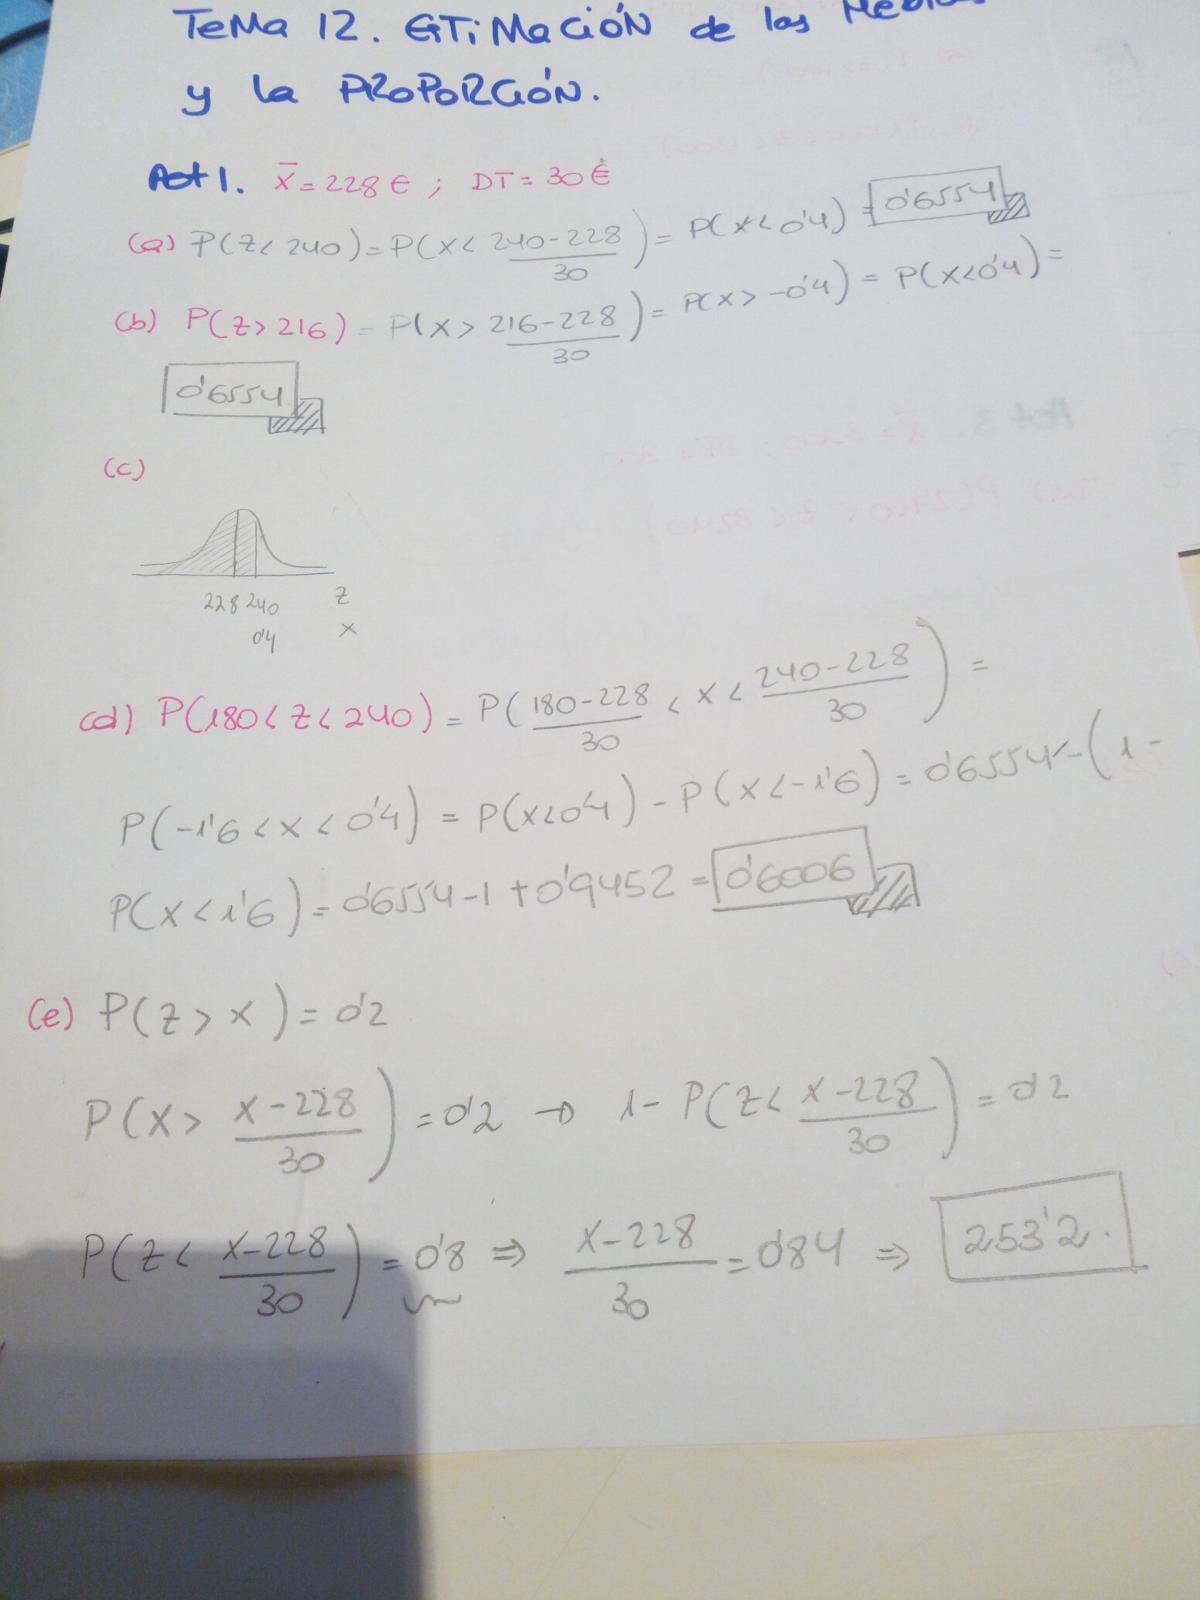 TEMA 12. ESTIMACIÓN de las Medias
y la PROPORCIÓN.
Act 1. x̄ = 228 € ; DT = 30 €
(a) P(Z < 240) = P(X < (240-228)/30) = P(X < 0'4) = 0'6554
(b) P(Z > 216) = P(X > (216-228)/30) = P(X > -0'4) = P(X < 0'4) =
0'6554
(c)
228 240 Z
0'4 X
(d) P(180 < Z < 240) = P((180-228)/30 < X < (240-228)/30) =
P(-1'6 < X < 0'4) = P(X < 0'4) - P(X < -1'6) = 0'6554 - (1 -
P(X < 1'6) = 0'6554 - 1 + 0'9452 = 0'6006
(e) P(Z > X) = 0'2
P(X > (X-228)/30) = 0'2 → 1 - P(Z < (X-228)/30) = 0'2
P(Z < (X-228)/30) = 0'8 ⇒ (X-228)/30 = 0'84 ⇒ 253'2.